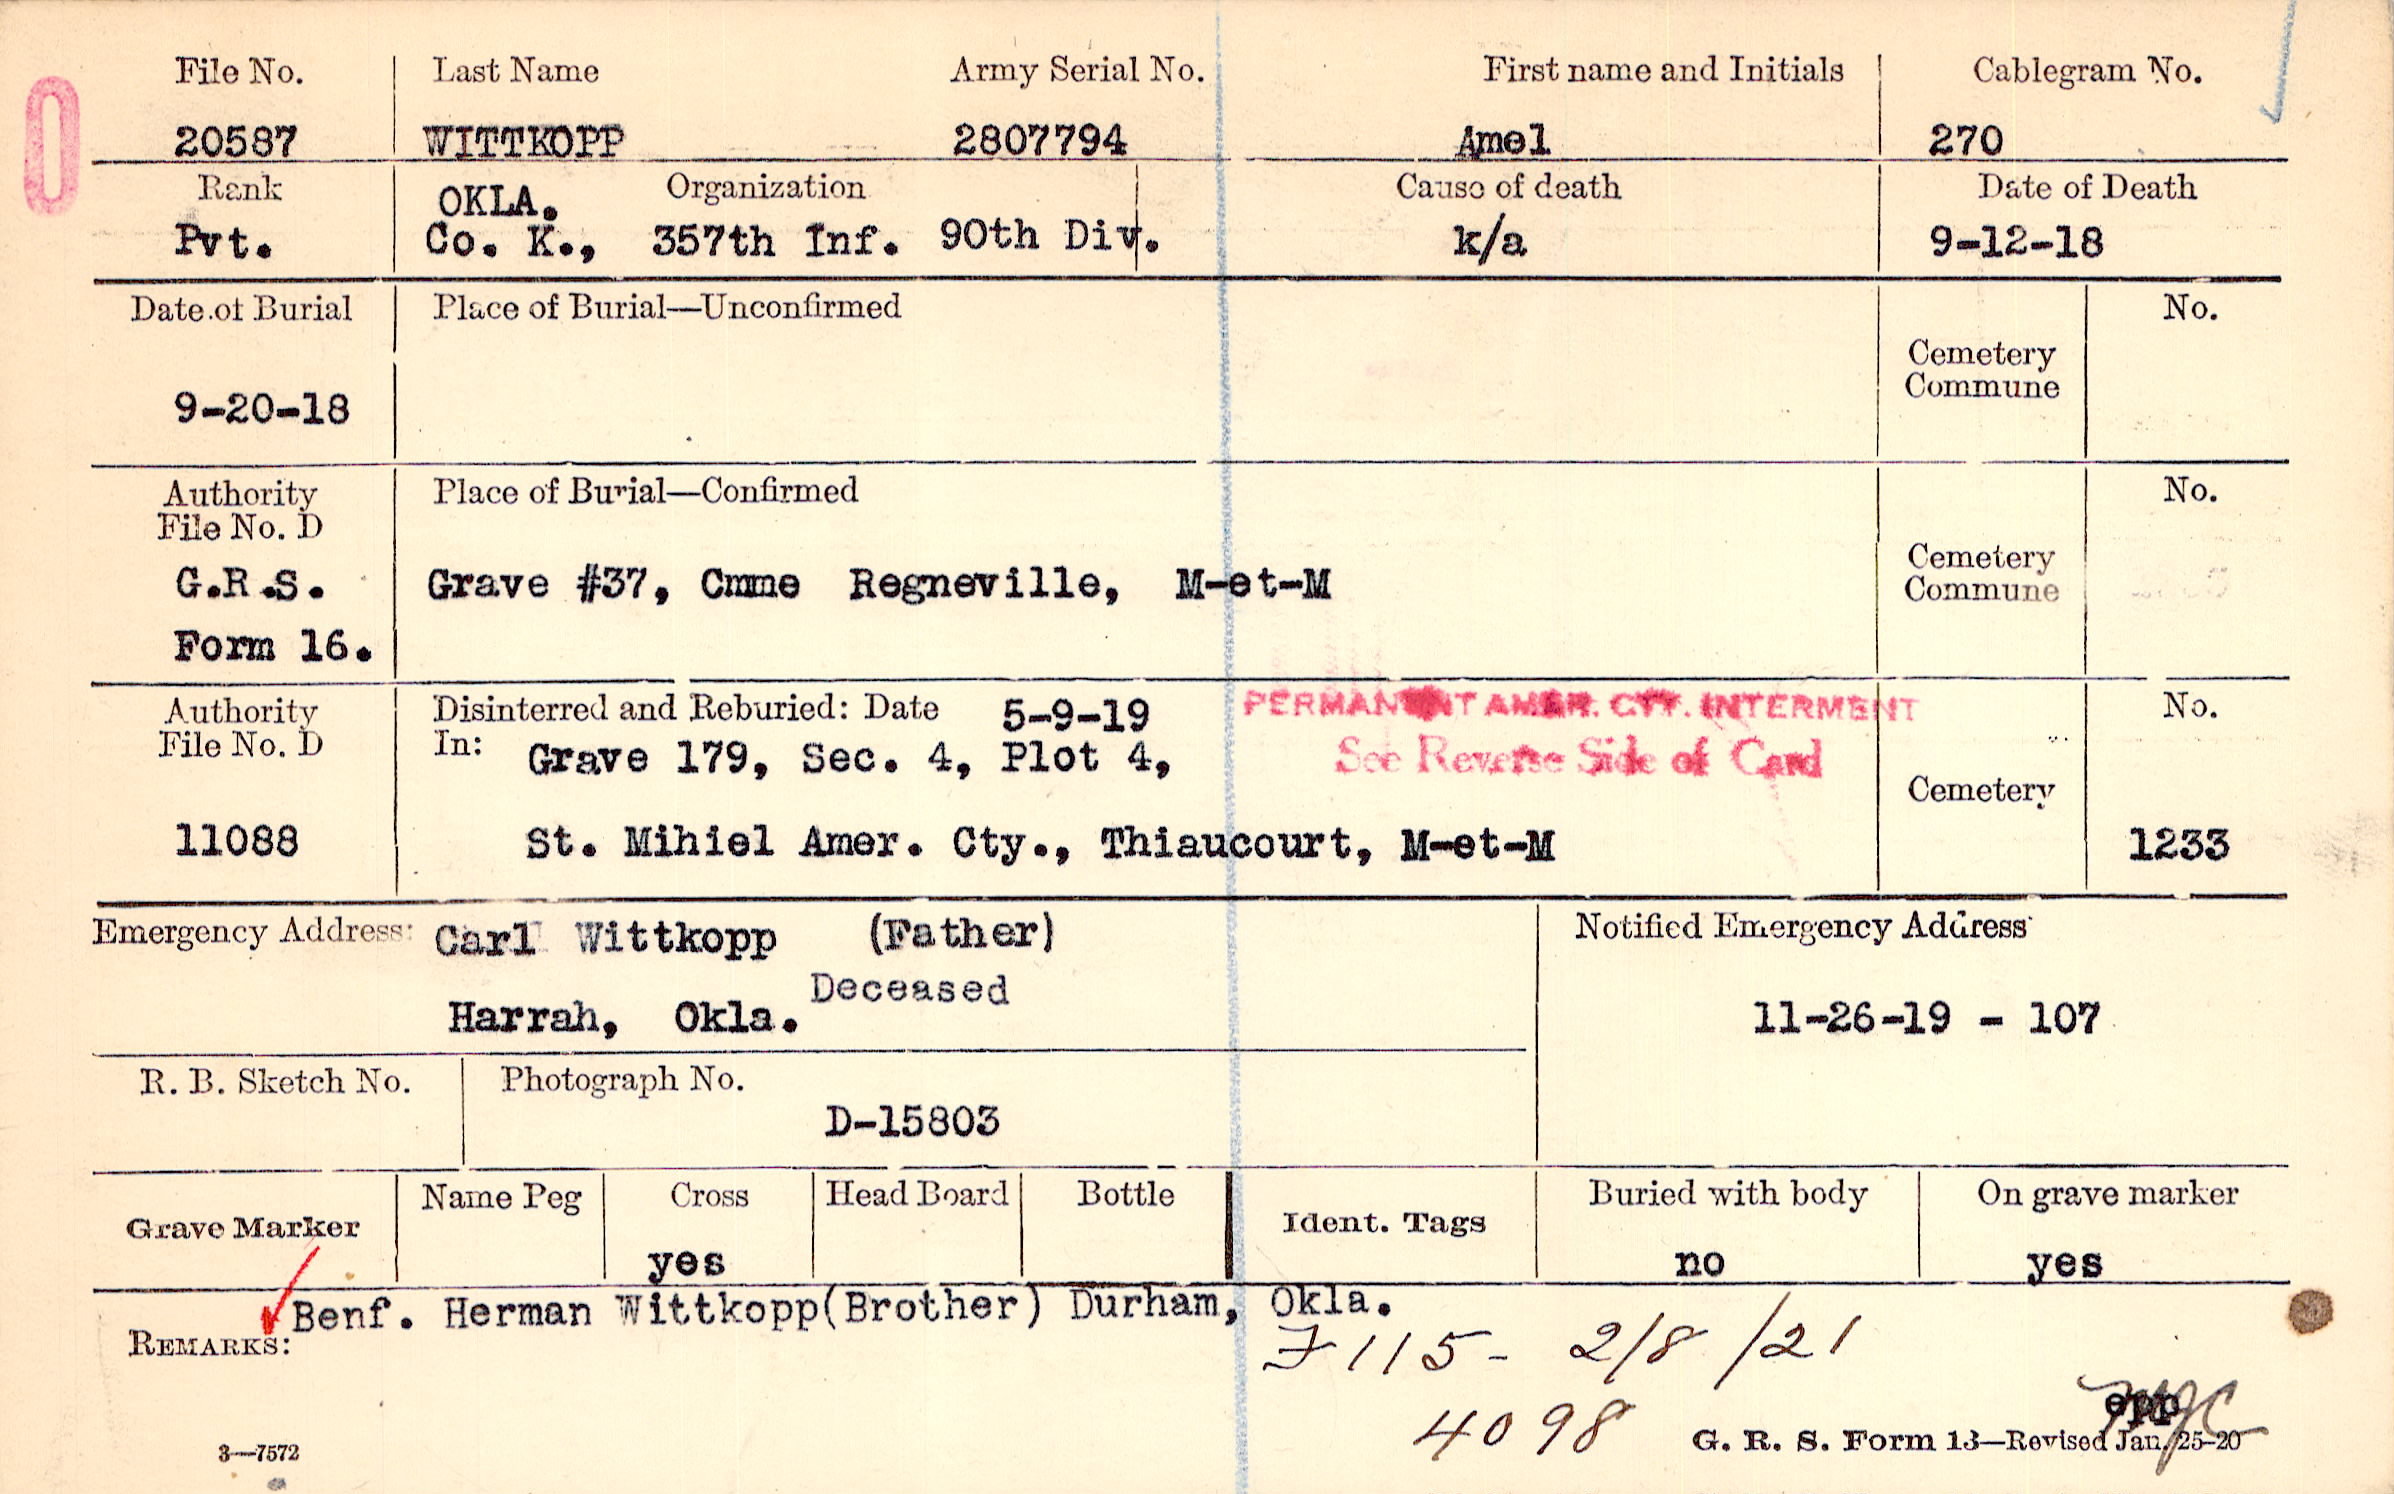 File No. Last Name Army Serial No. First name and Initials Cablegram No.
20587 WITTKOPP 2807794 Amel 270
Rank OKLA. Organization Cause of death Date of Death
Pvt. Co. K., 357th Inf. 90th Div. k/a 9-12-18
Date of Burial Place of Burial—Unconfirmed No.
Cemetery
Commune
9-20-18
Authority Place of Burial—Confirmed No.
File No. D
Cemetery
G.R.S. Grave #37, Cmme Regneville, M-et-M Commune
Form 16.
Authority Disinterred and Reburied: Date 5-9-19 PERMANENT AMER. CTY. INTERMENT No.
File No. D In: Grave 179, Sec. 4, Plot 4, See Reverse Side of Card
Cemetery
11088 St. Mihiel Amer. Cty., Thiaucourt, M-et-M 1233
Emergency Address: Carl Wittkopp (Father) Notified Emergency Address
Deceased
Harrah, Okla. 11-26-19 - 107
R. B. Sketch No. Photograph No.
D-15803
Name Peg Cross Head Board Bottle Buried with body On grave marker
Grave Marker Ident. Tags
yes no yes
Benf. Herman Wittkopp(Brother) Durham, Okla.
REMARKS: F115- 2/8/21
epp
4098
G. R. S. Form 13—Revised Jan. 25-20
3—7572